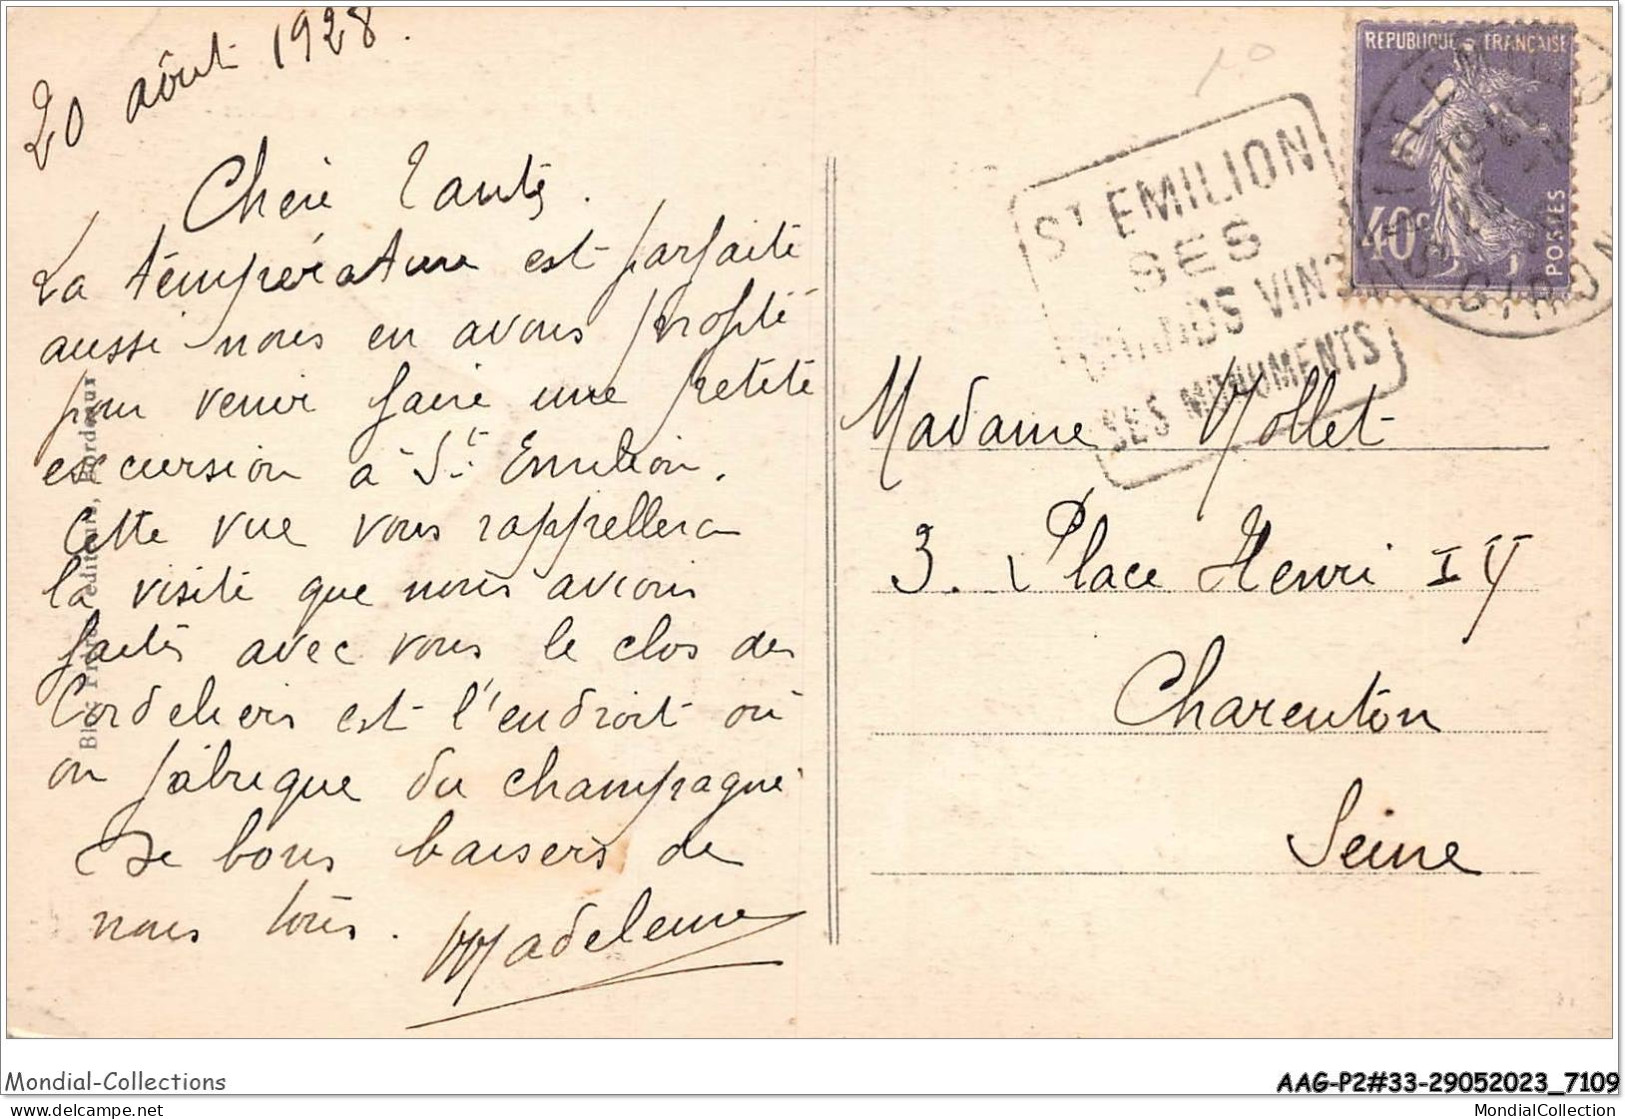 20 août 1928.
Chère Tante,
La température est parfaite
aussi nous en avons profité
pour venir faire une petite
excursion à St. Emilion.
Cette vue vous rappellera
la visite que nous avions
faites avec vous le clos des
Cordeliers est l'endroit où
on fabrique du champagne
De bons baisers de
nous tous. Madeleine
éditeurs, Bordeaux
ST EMILION
SES
GRANDS VINS
SES MONUMENTS
REPUBLIQUE FRANÇAISE
40c
POSTES
Madame Mollet
3. Place Henri IV
Charenton
Seine
Mondial-Collections
AAG-P2#33-29052023_7109
www.delcampe.net
MondialCollection